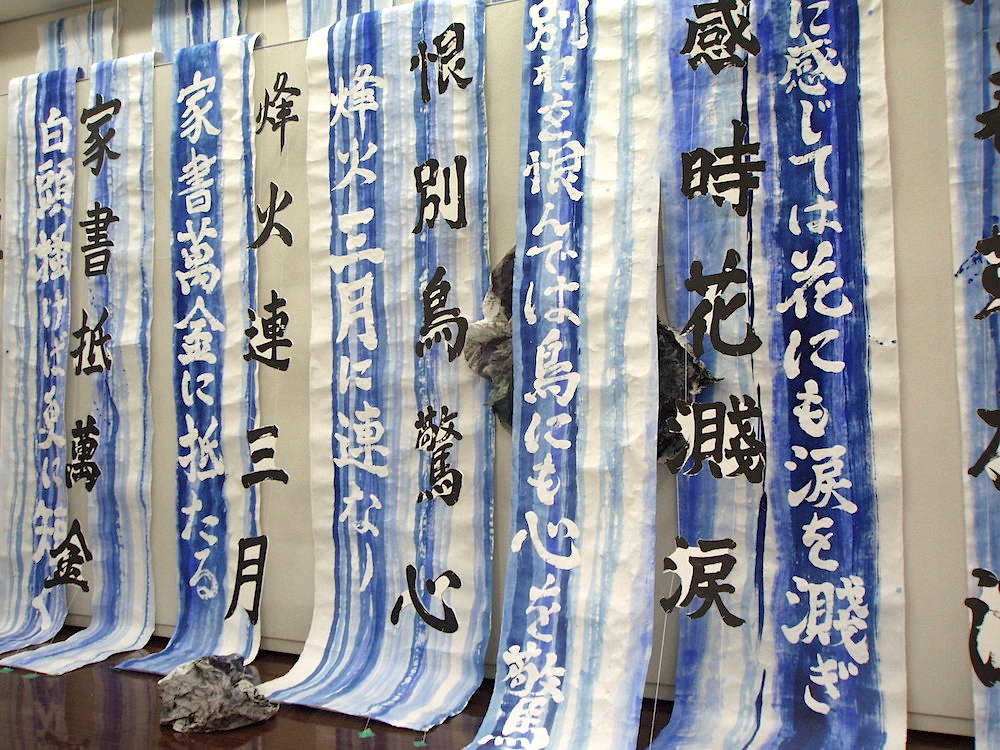 に感じては花にも涙を濺ぎ
感時花濺涙
別れを恨んでは鳥にも心を驚
恨別鳥驚心
烽火三月に連なり
烽火連三月
家書萬金に抵たる
家書抵萬金
白頭掻けば更に短く